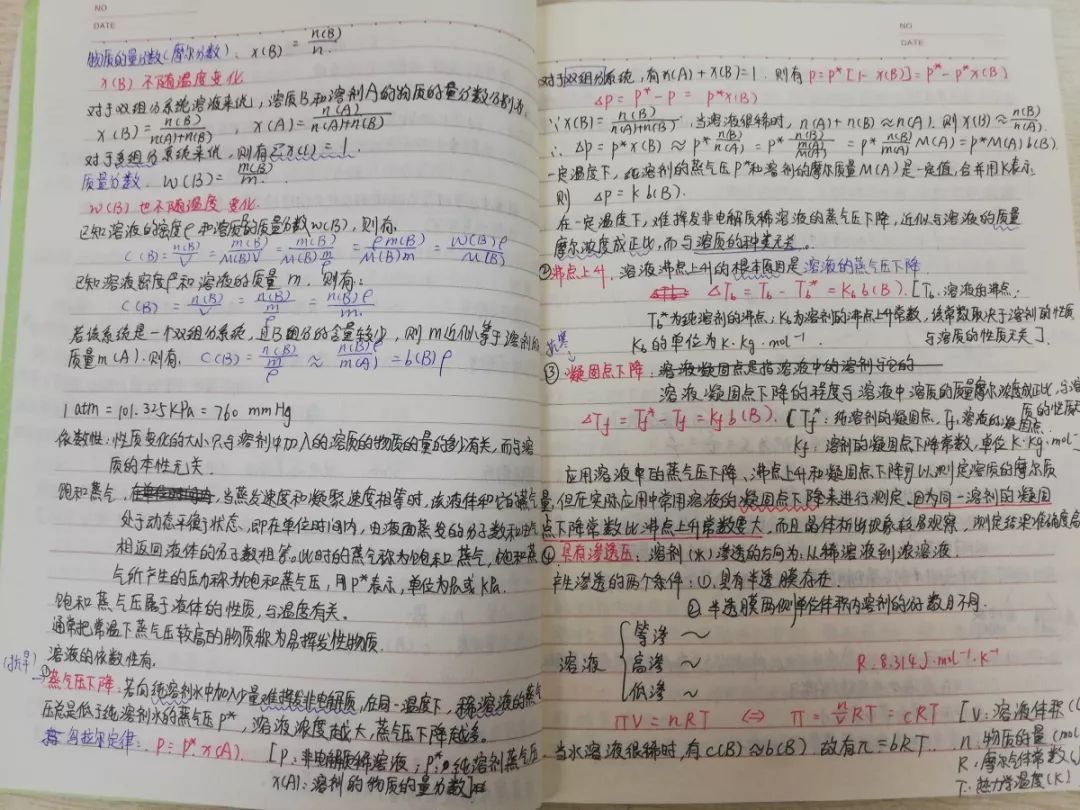 NO
DATE
物质的量分数(摩尔分数). x(B) = n(B)/n.
x(B) 不随温度变化
对于双组分系统溶液来说,溶质B和溶剂A的物质的量分数分别为.
x(B) = n(B)/n(A)+n(B) , x(A) = n(A)/n(A)+n(B)
对于多组分系统来说, 则有 Σx(i) = 1.
质量分数. W(B) = m(B)/m.
W(B) 也不随温度变化.
已知溶液的密度ρ和溶质的质量分数w(B), 则有.
C(B) = n(B)/V = m(B)/M(B)V = m(B)/M(B)m/ρ = ρm(B)/M(B)m = W(B)ρ/M(B)
已知溶液密度ρ和溶液的质量 m. 则有:
C(B) = n(B)/V = n(B)/m/ρ = n(B)ρ/m
若该系统是一个双组分系统, 且B组分的含量较少, 则m近似等于溶剂的
质量m(A). 则有. C(B) = n(B)/m/ρ ≈ n(B)ρ/m(A) = b(B)ρ
1 atm = 101.325 KPa = 760 mmHg
依数性:性质变化的大小只与溶剂中加入的溶质的物质的量的多少有关,而与溶
质的本性无关.
饱和蒸气, 当蒸发速度和凝聚速度相等时,该液体和它的蒸气
处于动态平衡状态, 即在单位时间内,由液面蒸发的分子数和由气
相返回液体的分子数相等.此时的蒸气称为饱和蒸气,饱和蒸
气所产生的压力称为饱和蒸气压,用P*表示,单位为Pa或 kPa.
饱和蒸气压属于液体的性质,与温度有关.
通常把常温下蒸气压较高的物质称为易挥发性物质.
溶液的依数性有.
①蒸气压下降:若向纯溶剂水中加入少量难挥发非电解质,在同一温度下,稀溶液的蒸气
压总是低于纯溶剂水的蒸气压P*, 溶液浓度越大,蒸气压下降越多.
乌拉尔定律: P = P* x(A). [P:非电解质稀溶液; P*:纯溶剂蒸气压
x(A):溶剂的物质的量分数]
NO
DATE
对于双组分系统,有x(A)+x(B)=1. 则有 P=P*[1-x(B)]=P*-P*x(B)
ΔP = P*-P = P*x(B)
∵x(B) = n(B)/n(A)+n(B). 当溶液很稀时, n(A)+n(B)≈n(A). 则x(B)≈n(B)/n(A).
∴ ΔP = P*x(B) ≈ P* n(B)/n(A) = P* n(B)/m(A)/M(A) = P* n(B)/m(A) M(A) = P*M(A)b(B).
一定温度下, 纯溶剂的蒸气压P*和溶剂的摩尔质量M(A)是一定值,合并用K表示.
则 ΔP = K b(B).
在一定温度下,难挥发非电解质稀溶液的蒸气压下降,近似与溶液的质量
摩尔浓度成正比,而与溶质的种类无关。
②沸点上升. 溶液沸点上升的根本原因是溶液的蒸气压下降.
ΔTb = Tb - Tb* = Kb b(B). [Tb:溶液的沸点.
Tb*为纯溶剂的沸点;Kb为溶剂的沸点上升常数,该常数取决于溶剂的性质
Kb的单位为 K·kg·mol⁻¹. 与溶质的性质无关].
③凝固点下降. 溶液凝固点是指溶液中的溶剂与它的
溶液凝固点下降的程度与溶液中溶质的质量摩尔浓度成正比,与溶
质的性质无
ΔTf = Tf* - Tf = Kf b(B). [Tf*:纯溶剂的凝固点. Tf:溶液的凝固点.
Kf:溶剂的凝固点下降常数,单位 K·kg·mol⁻
应用溶液中的蒸气压下降、沸点上升和凝固点下降可以测定溶质的摩尔质
量,但在实际应用中常用溶液的凝固点下降来进行测定.因为同一溶剂的凝固
点下降常数比沸点上升常数要大,而且晶体析出现象较易观察,测定结果准确度高
④具有渗透压: 溶剂(水)渗透的方向为:从稀溶液到浓溶液.
产生渗透的两个条件:①.具有半透膜存在
②.半透膜两侧单位体积内溶剂的分数目不同.
溶液 { 等渗 ~
高渗 ~ R=8.314J·mol⁻¹·K⁻¹
低渗 ~
ΠV = nRT ⇔ Π = n/V RT = cRT [V:溶液体积(
当水溶液很稀时,有c(B)≈b(B) 故有π=bRT. n:物质的量(mol
R:摩尔气体常数(
T:热力学温度(K)